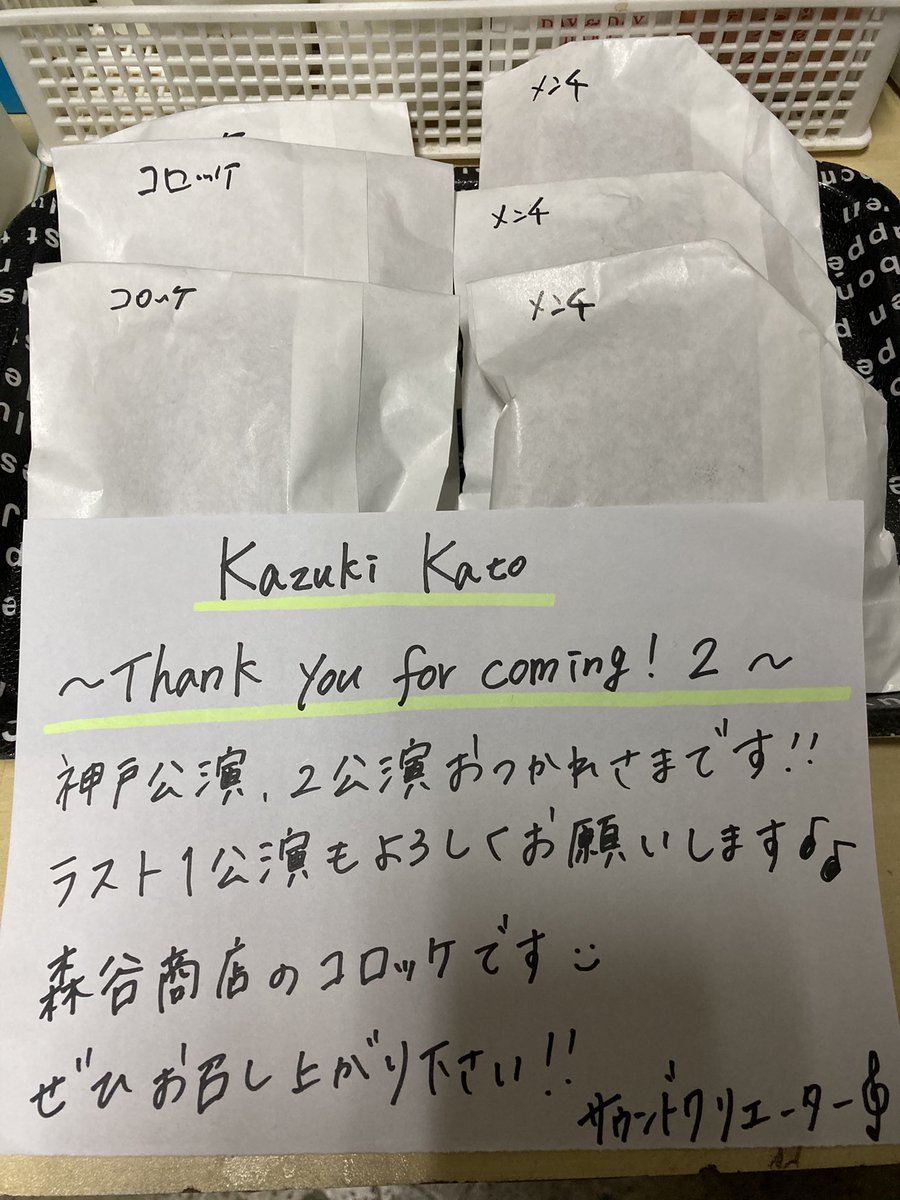 DAY for DAY
メンチ
コロッケ
メンチ
コロッケ
メンチ
Kazuki Kato
〜Thank you for coming! 2〜
神戸公演、2公演おつかれさまです!!
ラスト1公演もよろしくお願いします♪♪
森谷商店のコロッケです
ぜひお召し上がり下さい!!
サウンドクリエーター